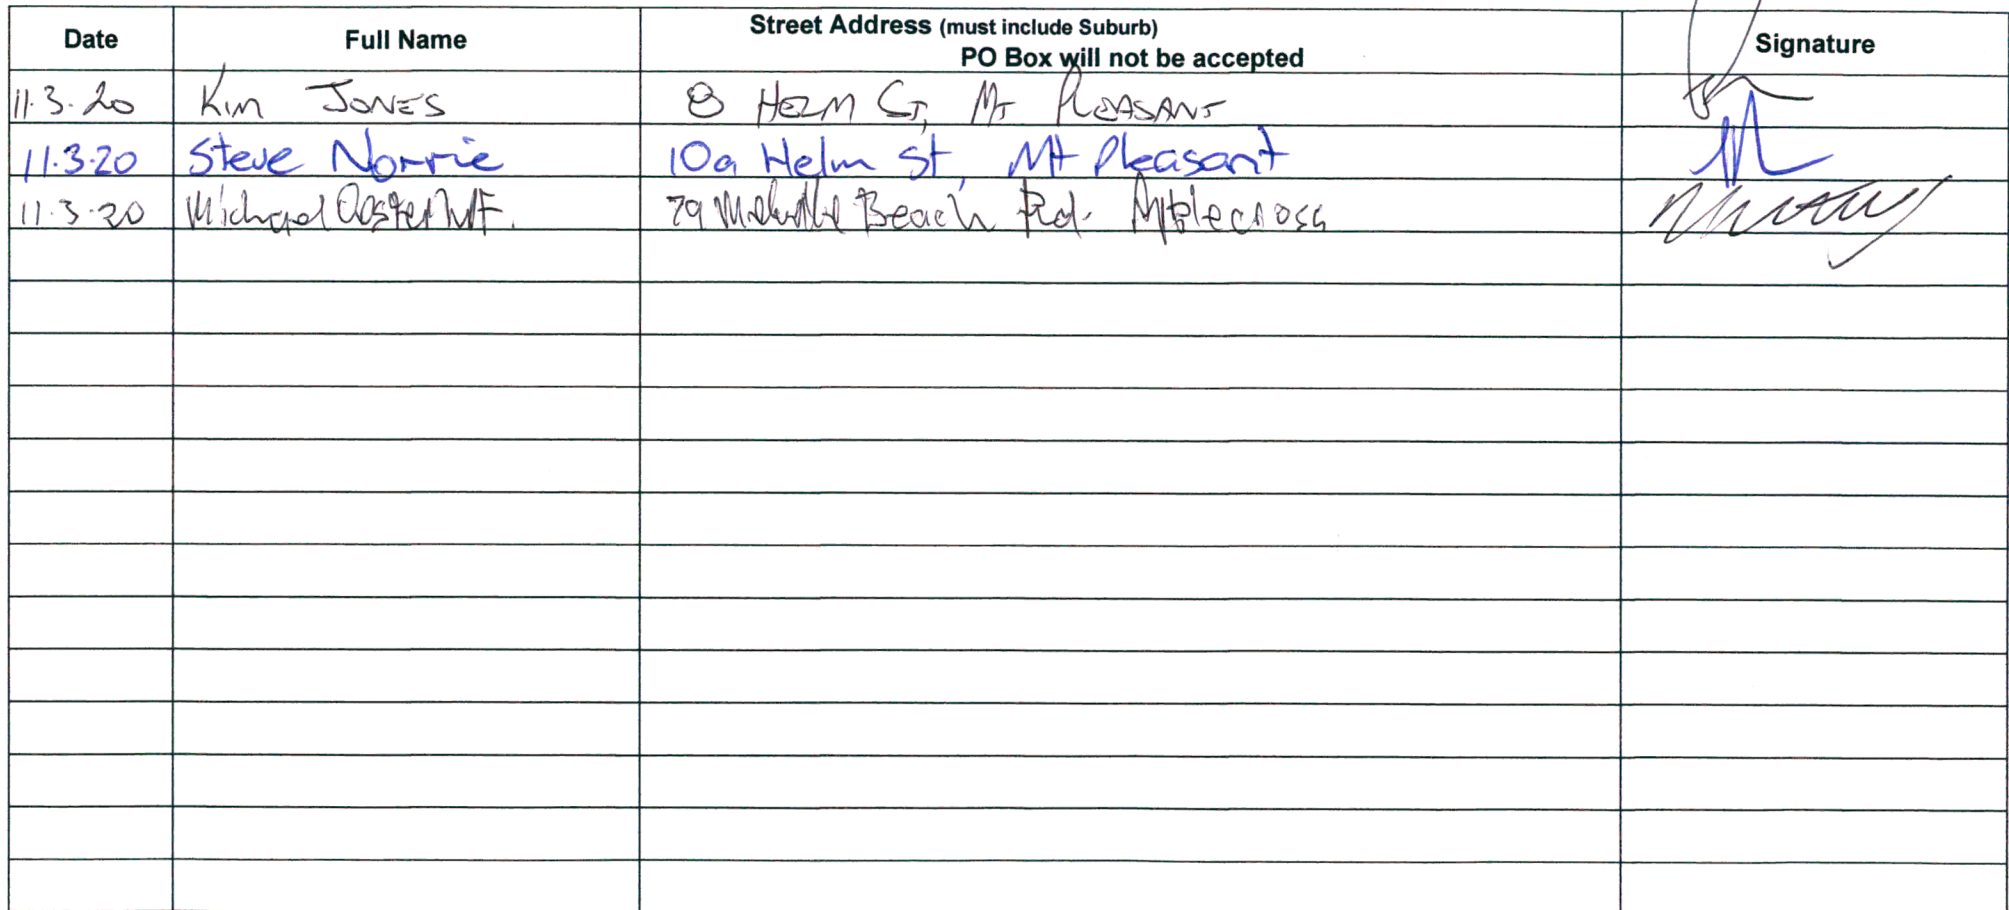 Date Full Name Street Address (must include Suburb) Signature
PO Box will not be accepted
11.3.20 Kim JONES 8 HELM ST, MT PLEASANT
11.3.20 Steve Norrie 10a Helm St, Mt Pleasant
11.3.20 Michael 79 Melville Beach Rd. Applecross